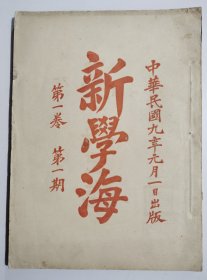 中華民國九年九月一日出版
新學海
第一卷 第一期